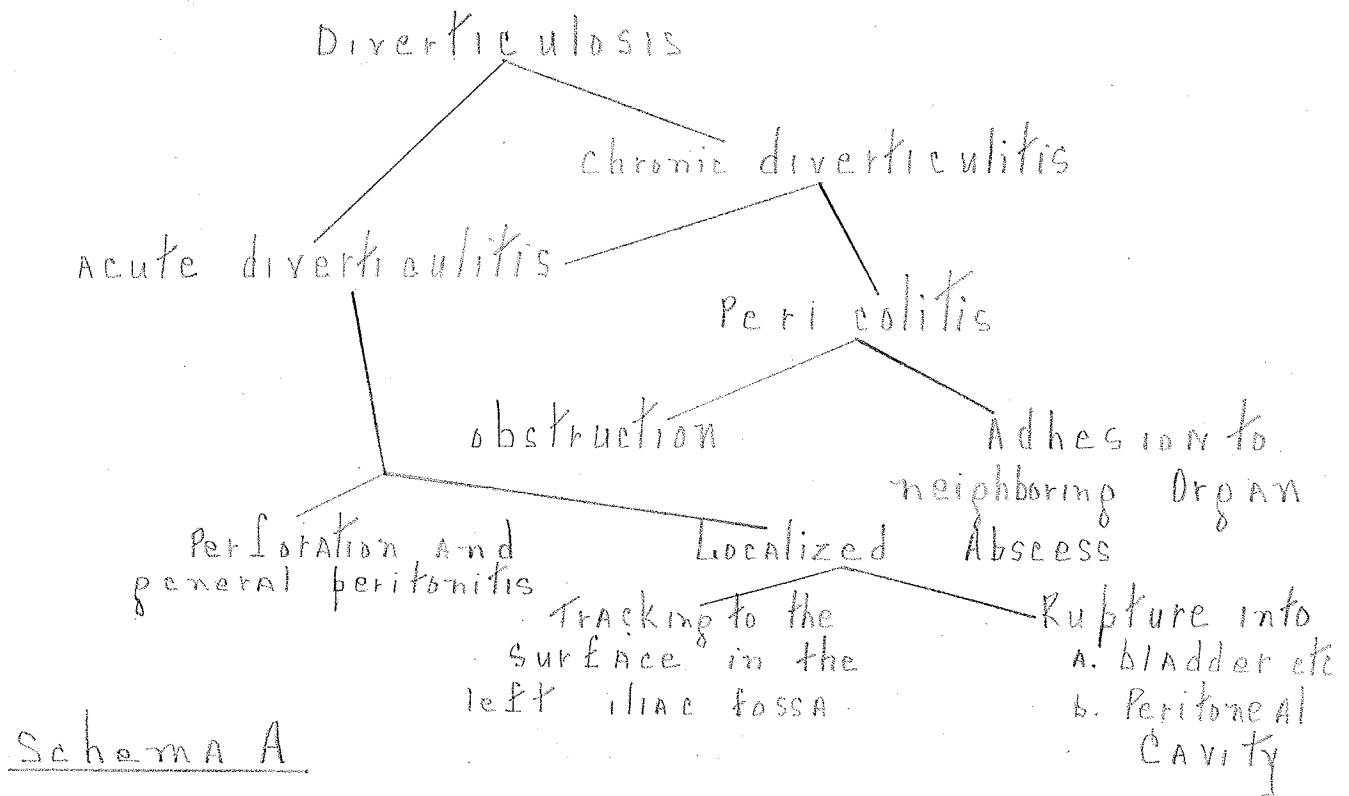 Diverticulosis
Chronic diverticulitis
Acute diverticulitis
Peri colitis
obstruction
Adhesion to
neighboring Organ
Perforation and
general peritonitis
Localized Abscess
Tracking to the
surface in the
left iliac fossa
Rupture into
A. bladder etc
b. Peritoneal
Cavity
Schema A